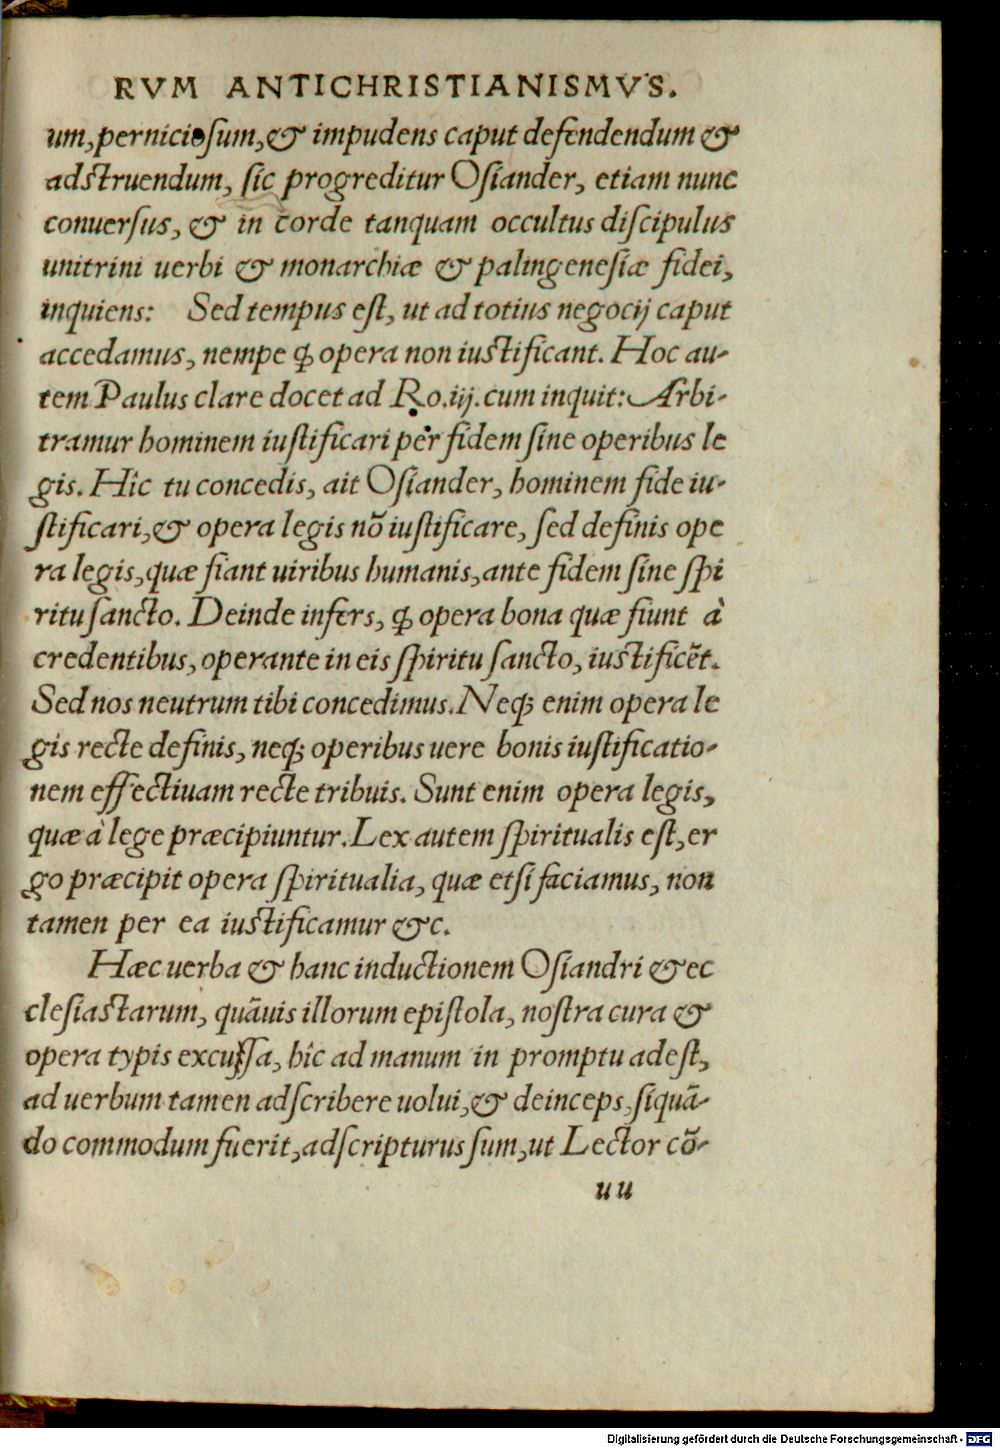 RVM ANTICHRISTIANISMVS.
um, perniciosum, & impudens caput defendendum &
adstruendum, sic progreditur Osiander, etiam nunc
conuersus, & in corde tanquam occultus discipulus
unitrini uerbi & monarchiæ & palingenesiæ fidei,
inquiens: Sed tempus est, ut ad totius negocij caput
accedamus, nempe ꝙ opera non iustificant. Hoc au-
tem Paulus clare docet ad Ro.iij. cum inquit: Arbi-
tramur hominem iustificari per fidem sine operibus le
gis. Hîc tu concedis, ait Osiander, hominem fide iu-
stificari, & opera legis nõ iustificare, sed definis ope
ra legis, quæ fiant uiribus humanis, ante fidem sine spi
ritu sancto. Deinde infers, ꝙ opera bona quæ fiunt à
credentibus, operante in eis spiritu sancto, iustificẽt.
Sed nos neutrum tibi concedimus. Neqꝫ enim opera le
gis recte definis, neqꝫ operibus uere bonis iustificatio-
nem effectiuam recte tribuis. Sunt enim opera legis,
quæ à lege præcipiuntur. Lex autem spiritualis est, er
go præcipit opera spiritualia, quæ etsi faciamus, non
tamen per ea iustificamur &c.
Hæc uerba & hanc inductionem Osiandri & ec
clesiastarum, quãuis illorum epistola, nostra cura &
opera typis excussa, hîc ad manum in promptu adest,
ad uerbum tamen adscribere uolui, & deinceps, siquã-
do commodum fuerit, adscripturus sum, ut Lector cõ-
uu
Digitalisierung gefördert durch die Deutsche Forschungsgemeinschaft - DFG